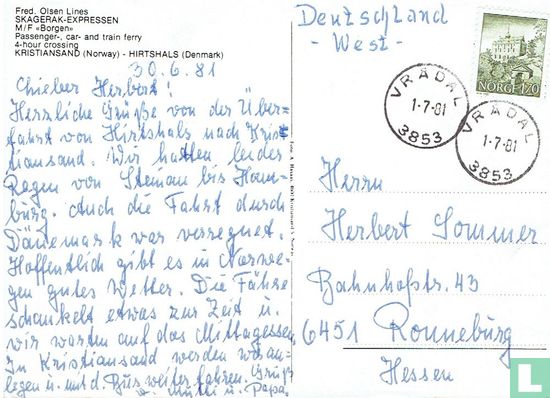 Fred. Olsen Lines
SKAGERAK-EXPRESSEN
M/F «Borgen»
Passenger-, car- and train ferry
4-hour crossing
KRISTIANSAND (Norway) - HIRTSHALS (Denmark)
30.6.81
Lieber Herbert!
Herzliche Grüße von der Über=
fahrt von Hirtshals nach Kris
tiansand. Wir hatten leider
Regen von Steinau bis Ham=
burg. Auch die Fahrt durch
Dänemark war verregnet.
Hoffentlich gibt es in Norwe=
gen gutes Wetter. Die Fähre
schaukelt etwas zur Zeit u.
wir warten auf das Mittagessen
In Kristiansand werden wir an=
legen u. mit d. Bus weiter fahren. Gruß
v. Mutti u. Papa.
Deutschland
- West -
NORGE 170
VRÅDAL
1-7-81
3853
VRÅDAL
1-7-81
3853
Herrn
Herbert Sommer
Bahnhofstr. 43
6451 Ronneburg
Hessen
catawiki